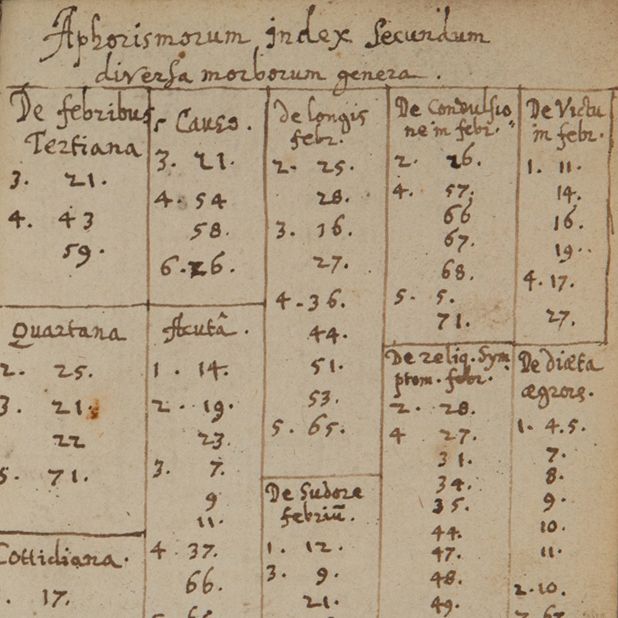 Aphorismorum index Secundum
diversa morborum genera.
De febribus
Tertiana
3. 21.
4. 43
59.
Quartana
2. 25.
3. 21.
22
5. 71.
Cottidiana.
. 17.
Causo.
3. 21.
4. 54
58.
6. 26.
Acutâ.
1. 14.
2. 19.
23.
3. 7.
9
11.
4. 37.
66.
De longis
febr.
2. 25.
28.
3. 16.
27.
4. 36.
44.
51.
53.
5. 65.
De Sudore
febriū.
1. 12.
3. 9.
21.
De Convulsio
ne in febr.
2. 26.
4. 57.
66
67.
68.
5. 5.
71.
De reliq. Sym
ptom. febr.
2. 28.
4 27.
31.
34.
35.
44.
47.
48.
49.
De Victu
in febr.
1. 11.
14.
16.
19.
4. 17.
27.
De diæta
ægrors.
1. 4. 5.
7.
8.
9.
10.
11.
2. 10.